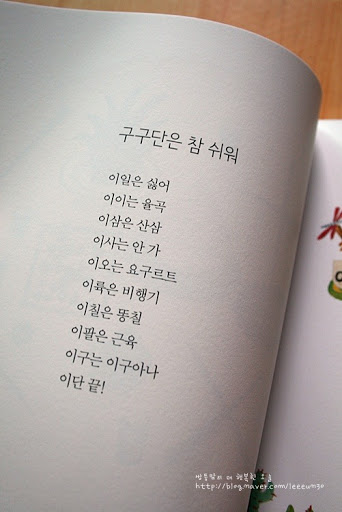 구구단은 참 쉬워
이일은 싫어
이이는 율곡
이삼은 산삼
이사는 안 가
이오는 요구르트
이륙은 비행기
이칠은 똥칠
이팔은 근육
이구는 이구아나
이단 끝!
http://blog.naver.com/leeeun90